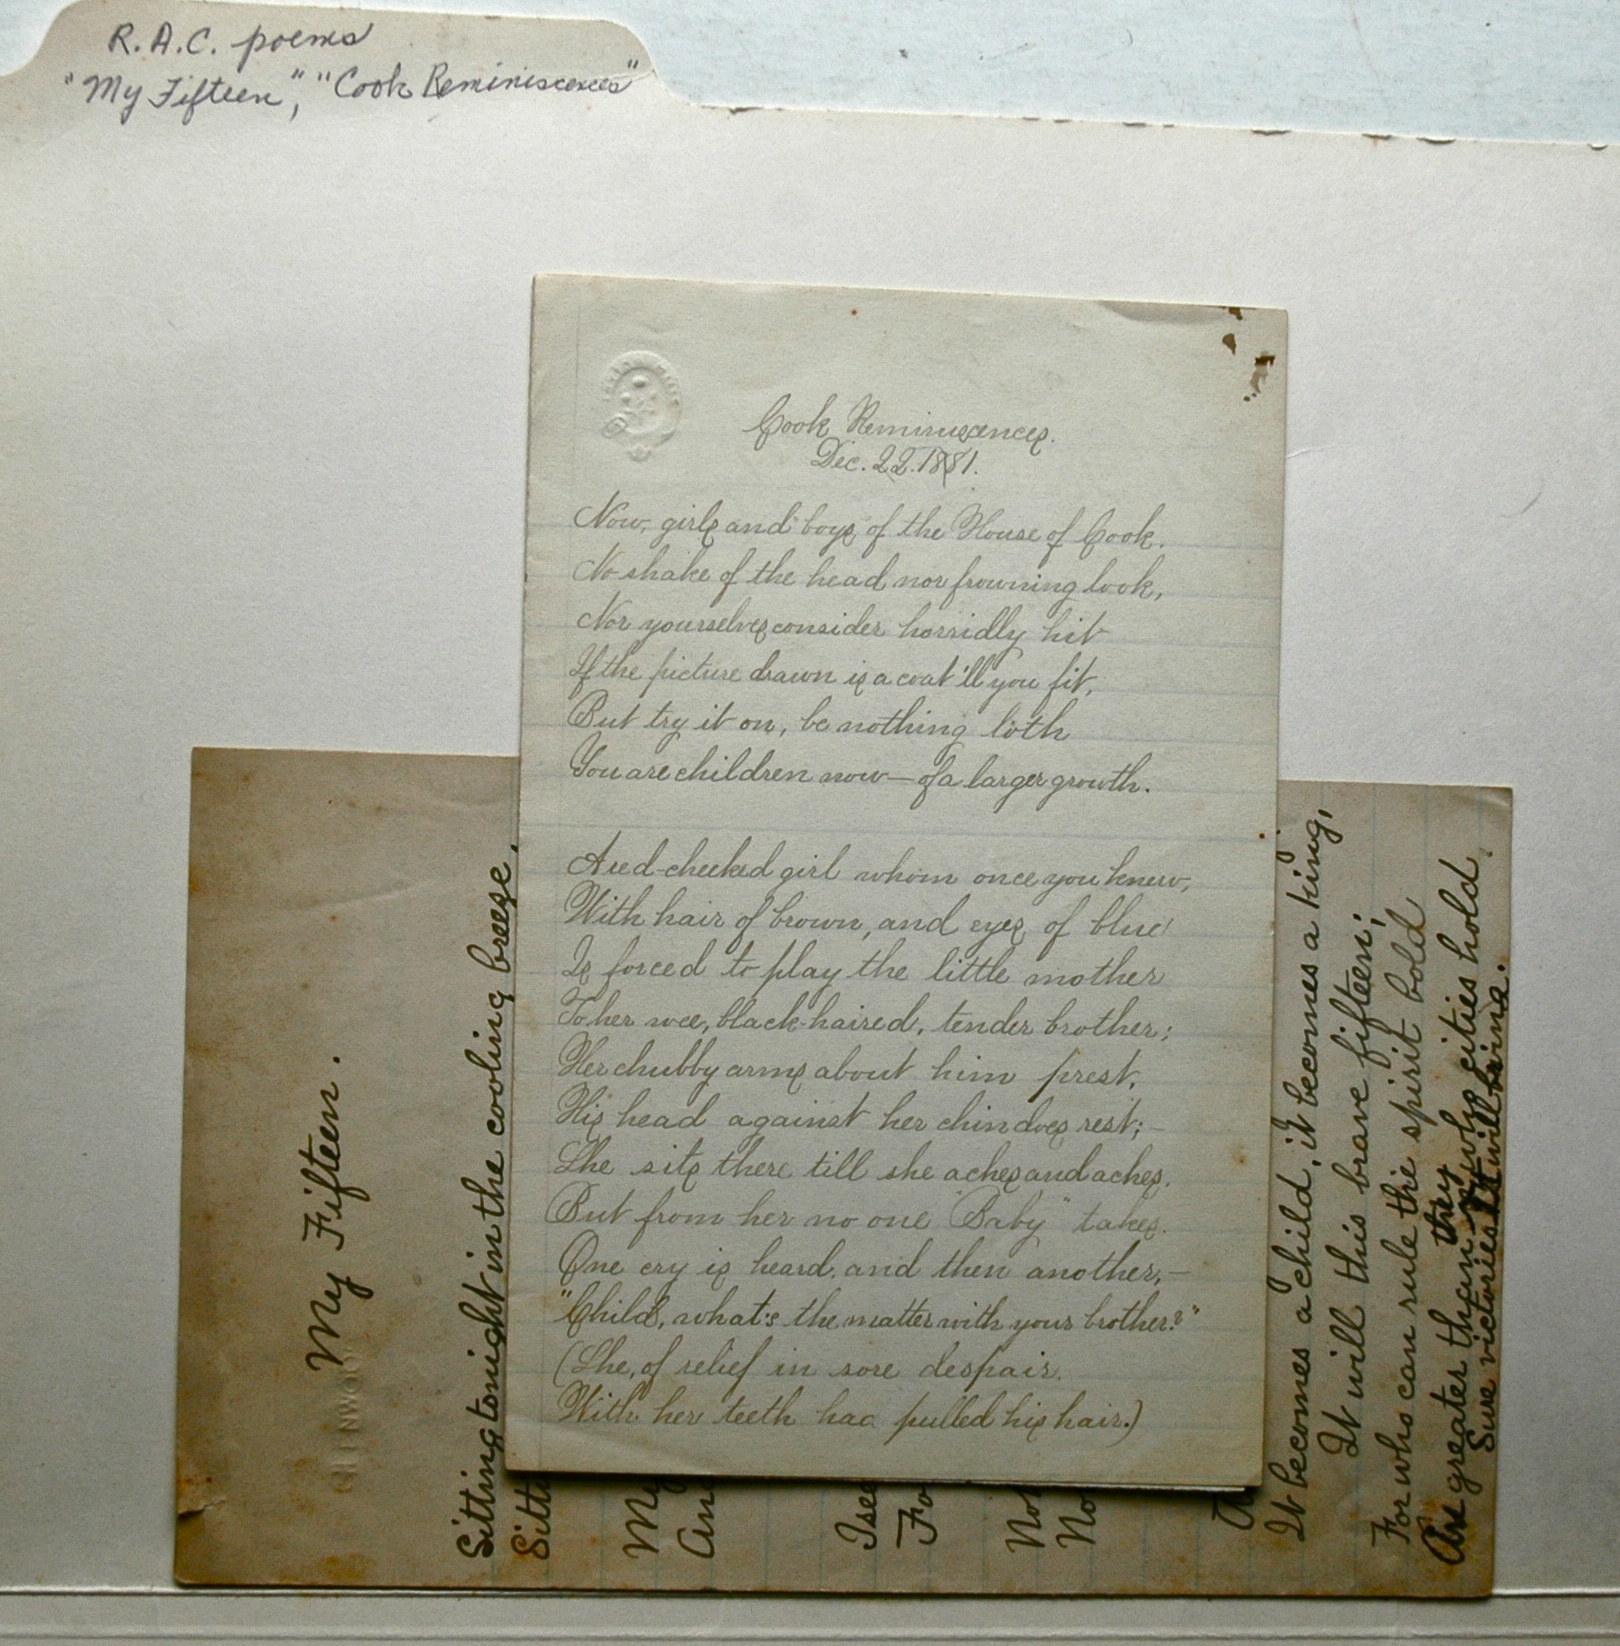 R.A.C. poems
"My Fifteen," "Cook Reminiscences"
Cook Reminiscences.
Dec. 22. 1881.
Now, girls and boys of the House of Cook.
No shake of the head nor frowning look,
Nor yourselves consider horridly hit
If the picture drawn is a coat 'll you fit,
But try it on, be nothing loth
You are children now — of a larger growth.
A red-cheeked girl whom once you knew,
With hair of brown, and eyes of blue
Is forced to play the little mother
To her wee, black-haired, tender brother;
Her chubby arms about him prest,
His head against her chin does rest; –
She sits there till she aches and aches.
But from her no one "Baby" takes.
One cry is heard, and then another, –
"Child, what's the matter with your brother?"
(She, of relief in sore despair.
With her teeth had pulled his hair.)
My Fifteen.
GLENWOOD
Sitting tonight in the cooling breeze,
Sitti
My
An
I see
Fo
Not
No
It becomes a child, it becomes a king,
It will this brave fifteen;
For who can rule the spirit bold
Are greater than they who cities hold
Sure victories will bring.